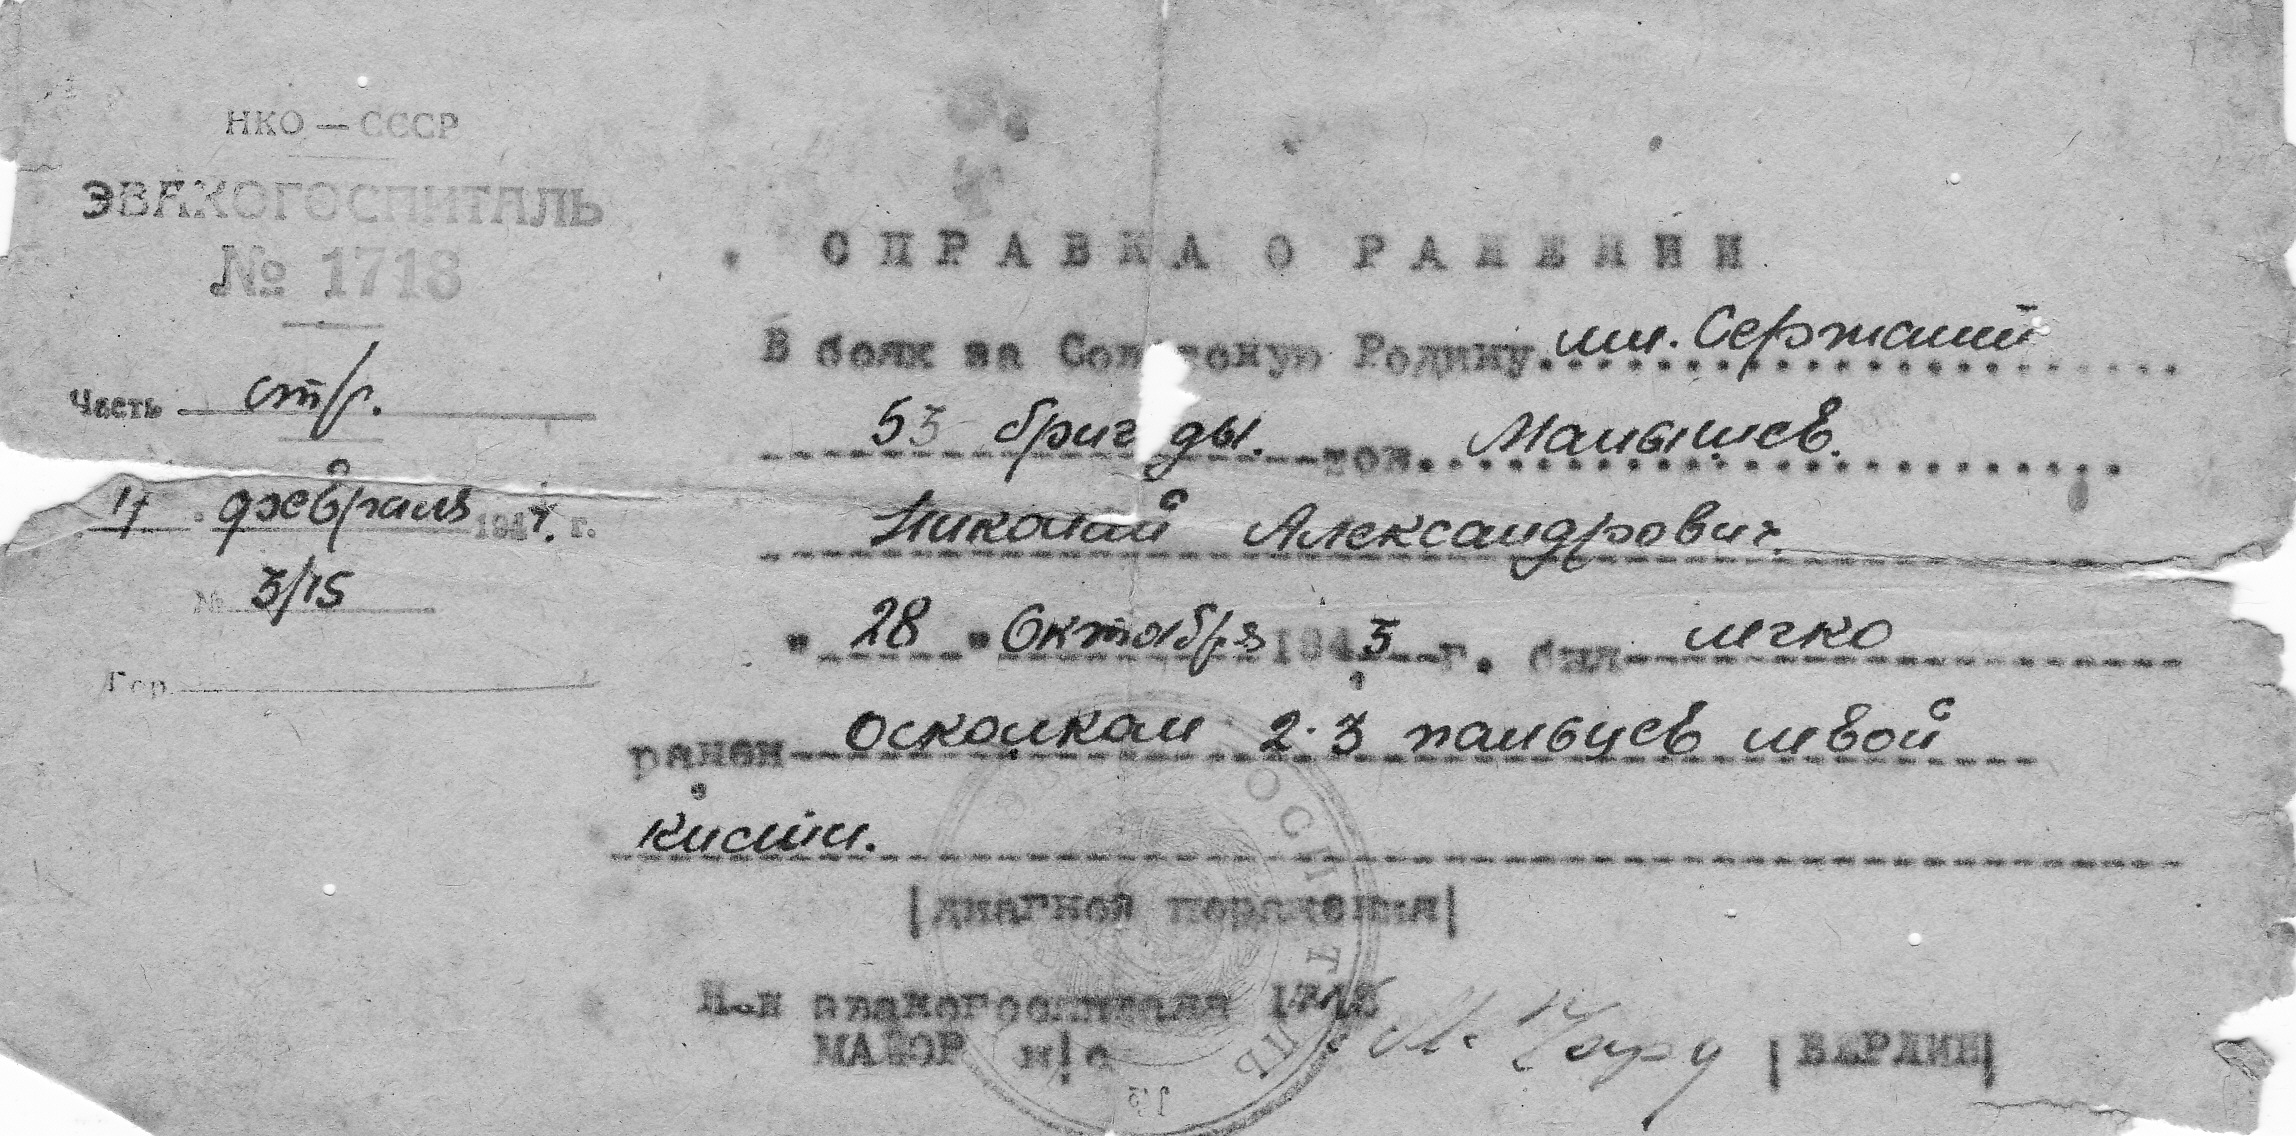 НКО — СССР
ЭВАКОГОСПИТАЛЬ
№ 1718
Часть стр.
февраля 1944 г.
№ 3/15
Гор.
СПРАВКА О РАНЕНИИ
В боях за Советскую Родину мл. Сержант
53 бригады. тов. Малышев.
Николай Александрович.
" 28 " Октября 1943 г. был легко
ранен осколком 2.3 пальцев левой
кисти.
|диагноз поражения|
Н-к эвакогоспиталя 1718
МАЙОР м/с |БЕРЛИН|
ГОСПИТАЛЬ